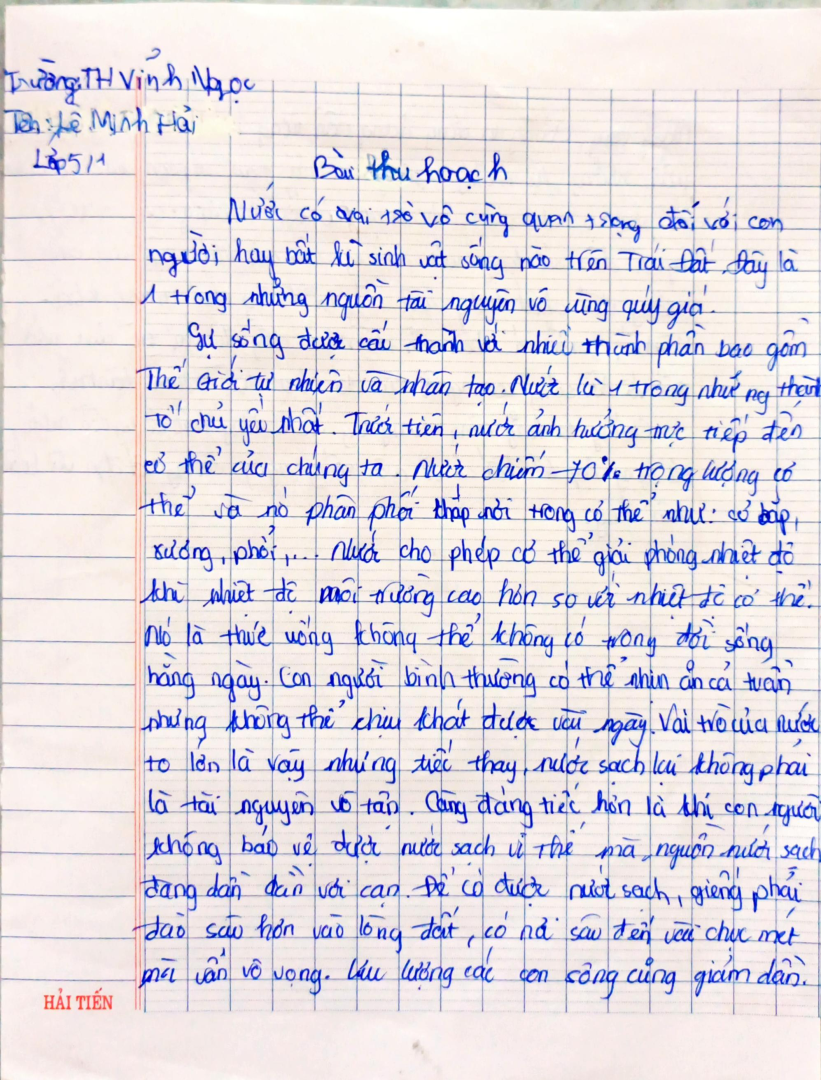 Trường: TH Vĩnh Ngọc
Tên: Lê Minh Hải
Lớp 5/1
Bài thu hoạch
Nước có vai trò vô cùng quan trọng đối với con
người hay bất kì sinh vật sống nào trên Trái Đất. Đây là
1 trong những nguồn tài nguyên vô cùng quý giá.
Sự sống được cấu thành với nhiều thành phần bao gồm
Thế Giới tự nhiên và nhân tạo. Nước là 1 trong những thành
tố chủ yếu nhất. Trước tiên, nước ảnh hưởng trực tiếp đến
cơ thể của chúng ta. Nước chiếm 70% trọng lượng cơ
thể và nó phân phối khắp nơi trong cơ thể như: cơ bắp,
xương, phổi,... Nước cho phép cơ thể giải phóng nhiệt độ
khi nhiệt độ môi trường cao hơn so với nhiệt độ cơ thể.
Nó là thức uống không thể không có trong đời sống
hằng ngày. Con người bình thường có thể nhịn ăn cả tuần
nhưng không thể chịu khát được vài ngày. Vai trò của nước
to lớn là vậy nhưng tiếc thay, nước sạch lại không phải
là tài nguyên vô tận. Càng đáng tiếc hơn là khi con người
không bảo vệ được nước sạch vì thế mà, nguồn nước sạch
đang dần dần vơi cạn. Để có được nước sạch, giếng phải
đào sâu hơn vào lòng đất, có nơi sâu đến vài chục mét
mà vẫn vô vọng. Lưu lượng các con sông cũng giảm dần.
HẢI TIẾN